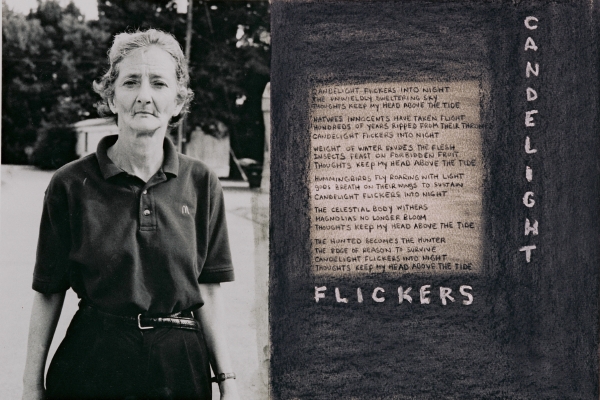 CANDELIGHT
CANDELIGHT FLICKERS INTO NIGHT
THE UNWIELDLY SWELTERING SKY
THOUGHTS KEEP MY HEAD ABOVE THE TIDE
NATURES INNOCENTS HAVE TAKEN FLIGHT
HUNDREDS OF YEARS RIPPED FROM THEIR
CANDELIGHT FLICKERS INTO NIGHT
WEIGHT OF WATER ERODES THE FLESH
INSECTS FEAST ON FORBIDDEN FRUIT
THOUGHTS KEEP MY HEAD ABOVE THE TIDE
HUMMINGBIRDS FLY ROARING WITH LIGHT
GODS BREATH ON THEIR WINGS TO SUSTAIN
CANDELIGHT FLICKERS INTO NIGHT
THE CELESTIAL BODY WITHERS
MAGNOLIAS NO LONGER BLOOM
THOUGHTS KEEP MY HEAD ABOVE THE TIDE
THE HUNTED BECOMES THE HUNTER
THE EDGE OF REASON TO SURVIVE
CANDELIGHT FLICKERS INTO NIGHT
THOUGHTS KEEP MY HEAD ABOVE THE TIDE
FLICKERS